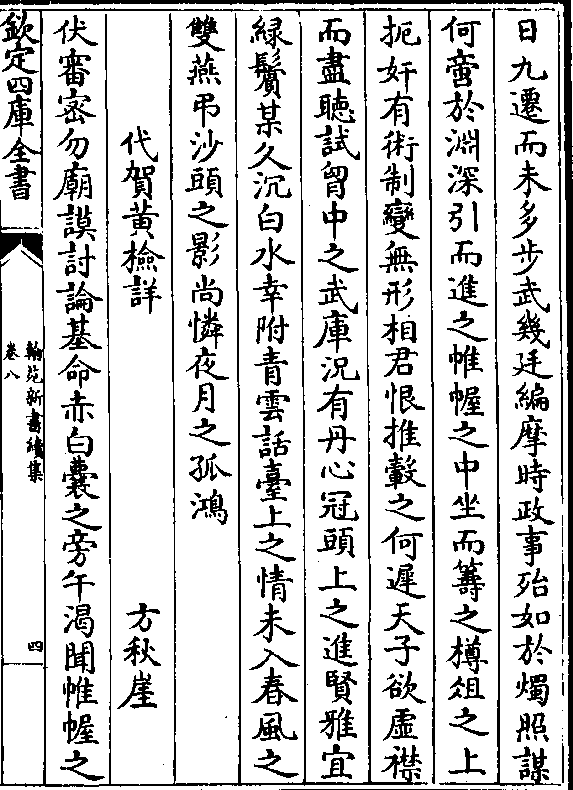 日九遷而未多步武幾廷編摩時政事殆如於燭照謀
何啻於淵深引而進之帷幄之中坐而籌之樽俎之上
扼奸有術制變無形相君恨推轂之何遲天子欲虛襟
而盡聽試胷中之武庫況有丹心冠頭上之進賢雅宜
緑鬢某久沉白水幸附青雲話臺上之情未入春風之
雙燕弔沙頭之影尚憐夜月之孤鴻
代賀黃檢詳 方秋崖
伏審密勿廟謨討論基命赤白囊之旁午渴聞帷幄之
欽定四庫全書
翰苑新書續集
卷八
四